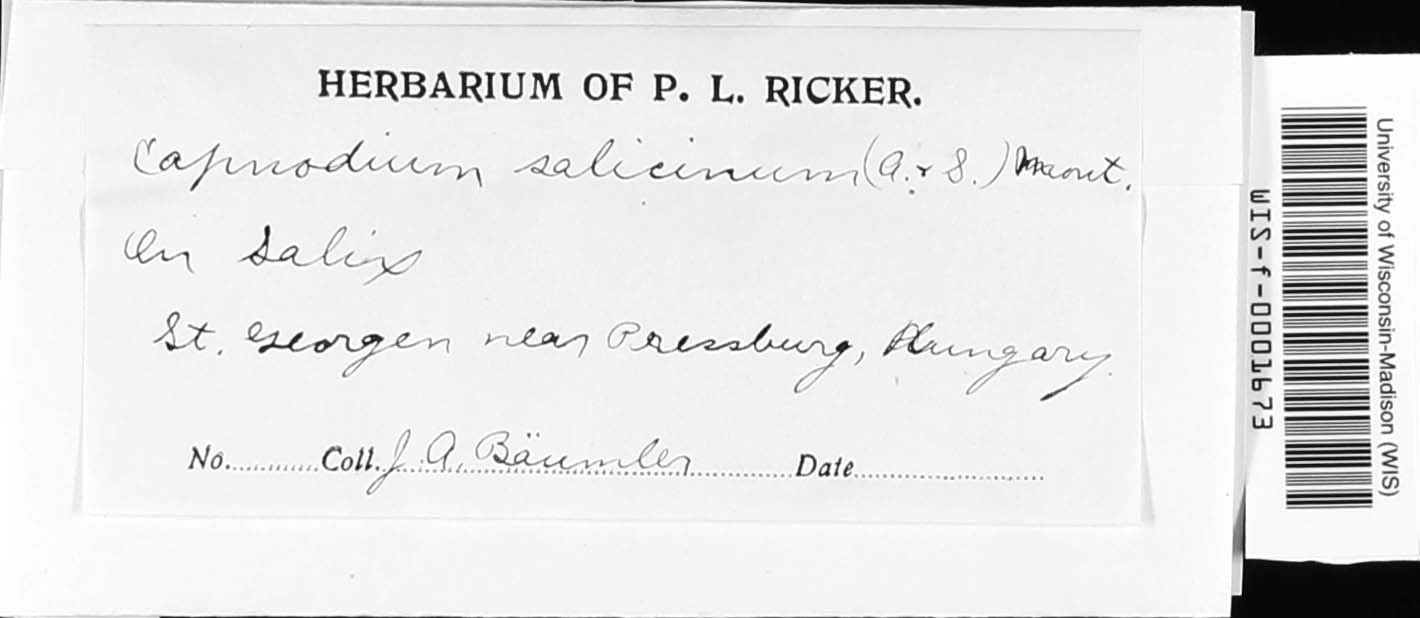 HERBARIUM OF P. L. RICKER.
Capnodium salicinum (A. & S.) Mont.
On Salix
St. Georgen near Pressburg, Hungary.
No. Coll. J. A. Bäumler Date
University of Wisconsin-Madison (WIS)
WIS-f-0001673